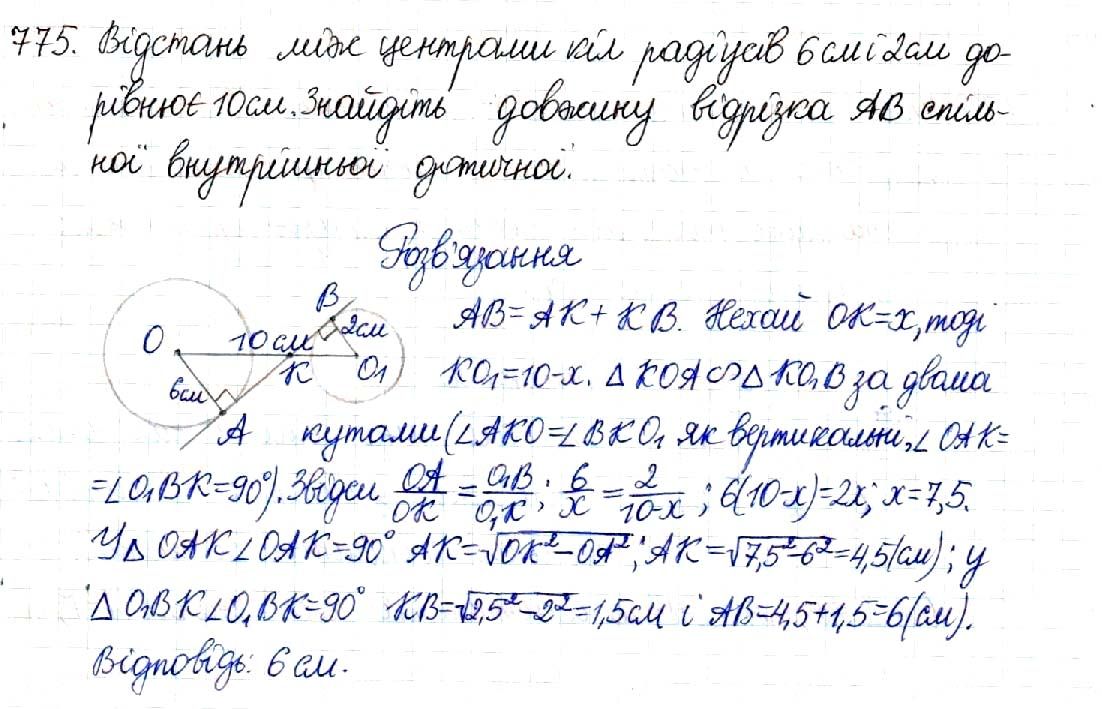 775. Відстань між центрами кіл радіусів 6 см і 2 см до-
рівнює 10 см. Знайдіть довжину відрізка AB спіль-
ної внутрішньої дотичної.
Розв'язання
B
AB = AK + KB. Нехай OK = x, тоді
O 10 см 2 см
K O₁
KO₁ = 10-x. △ KOA ∾ △ KO₁B за двома
6 см
A
кутами (∠AKO = ∠BKO₁ як вертикальні, ∠OAK =
= ∠O₁BK = 90°). Звідси OA/OK = O₁B/O₁K; 6/x = 2/10-x; 6(10-x) = 2x; x = 7,5.
У △ OAK ∠OAK = 90° AK = √OK² - OA²; AK = √7,5² - 6² = 4,5 (см); у
△ O₁BK ∠O₁BK = 90° KB = √2,5² - 2² = 1,5 см і AB = 4,5 + 1,5 = 6 (см).
Відповідь: 6 см.